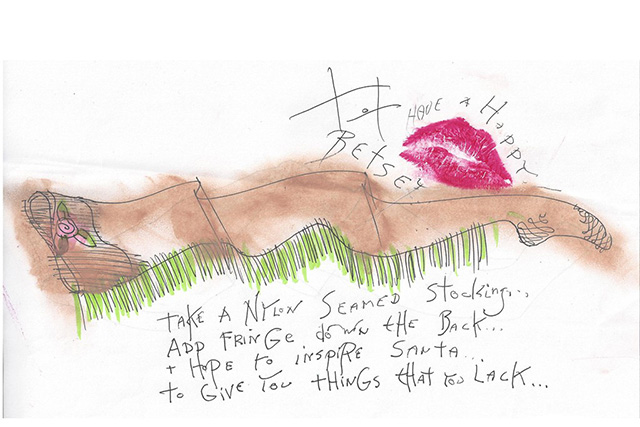 HAVE A HAPPY
BETSEY
TAKE A NYLON SEAMED STOCKING...
ADD FRINGE down THE BACK...
+ HOPE TO INSPIRE SANTA...
TO GIVE YOU THINGS that YOU LACK...